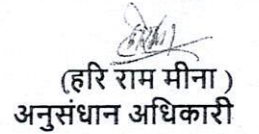 (हरि राम मीना )
अनुसंधान अधिकारी